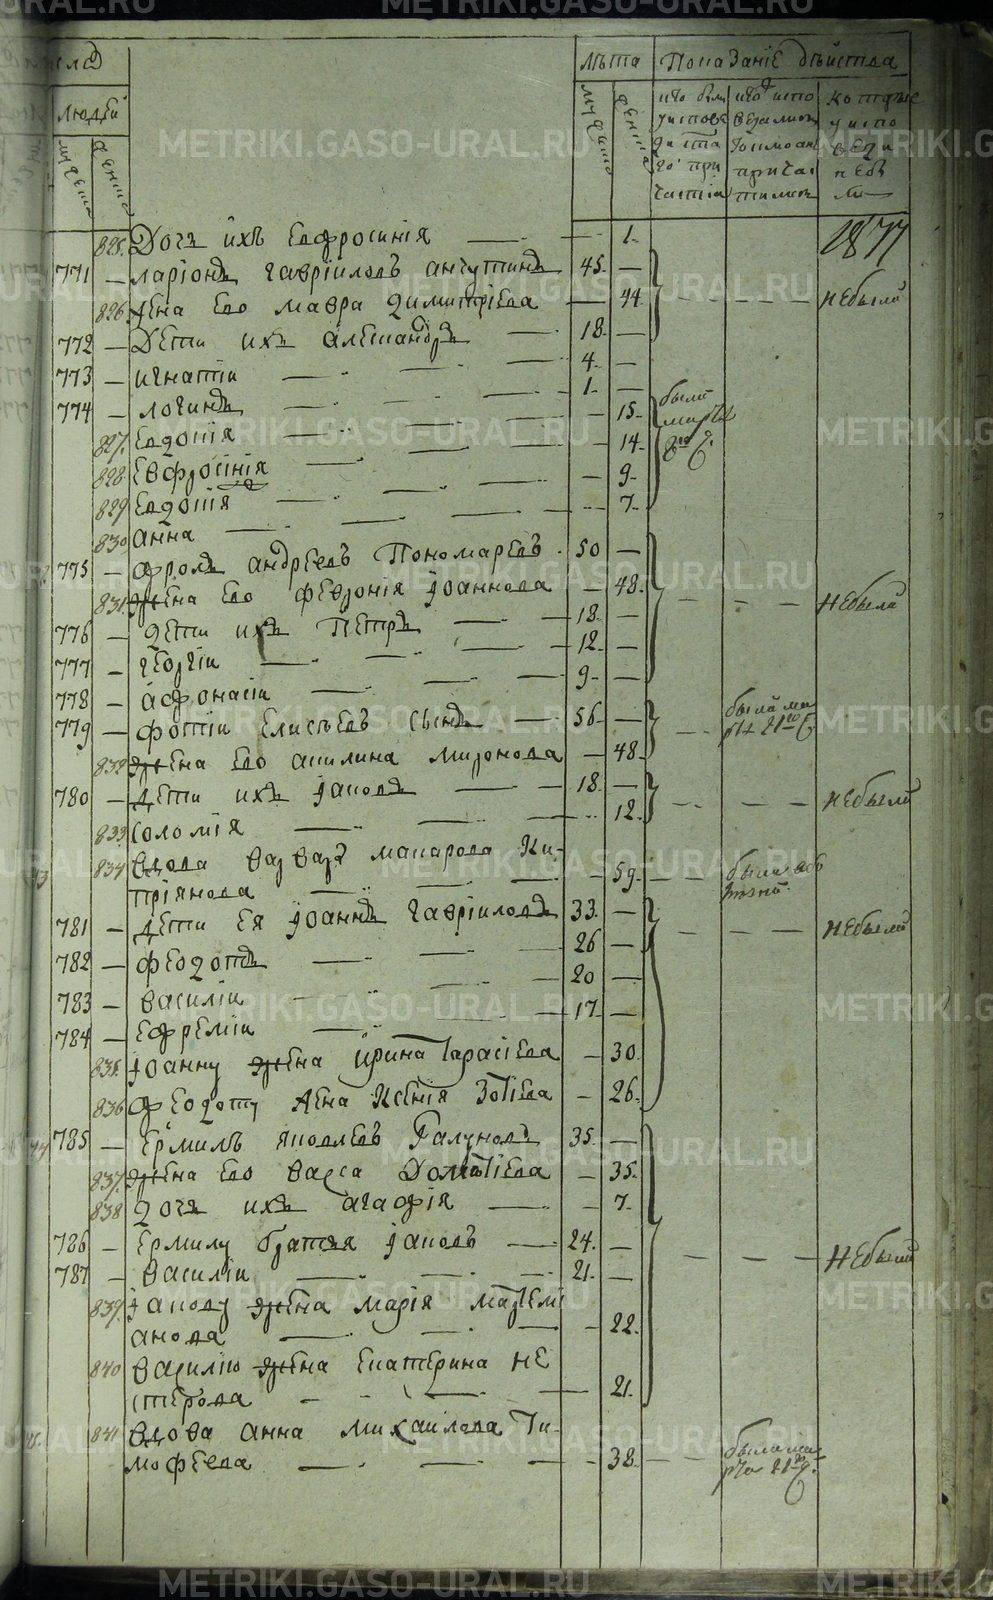 METRIKI.GASO-URAL.RU
лѣта Показаніе дѣйства
людей
мужеска женска
825. Дочь ихъ Евфросинія — — 1.
771 — Ларіонъ Гавріиловъ 45. —
826. Жена ево Мавра Димитріева — 44. — небыли
772 — Дети ихъ Александръ — 18. —
773 — Игнатіи — 4. —
774 — Логинъ — 1. —
827. Евдокія — 15. были марта
828 Евфросинія — 14.
829 Евдокія — 9.
830 Анна — 7.
775 — Фролъ Андреевъ Пономаревъ 50 —
831. Жена ево Февронія Іоаннова — 48. небыли
776 — Дети ихъ Петръ — 18. —
777 — Георгіи — 12. —
778 — Афонасіи — 9. —
779 — Фотіи Елисѣевъ Сынъ — 56. — были марта 21го
832 Жена ево Акилина Миронова — 48.
780 — Дети ихъ Іаковъ — 18. — небыли
833. Соломія — 12.
834 Вдова Варвара Макарова Ки-
пріянова — 59. — была
781 — Дети ея Іоаннъ Гавріиловъ 33. — небыли
782 — Феодотъ — 26 —
783 — Василіи — 20 —
784 — Ефремій — 17. —
835. Іоанну жена Ирина Тарасіева — 30.
836 Феодоту жена Ксенія Зотіева — 26.
785 — Ермилъ Яковлевъ Галуновъ 35. —
837. Жена ево Васса Дометіева — 35.
838 Дочь ихъ Агафія — 7.
786 — Ермилу братья Іаковъ — 24. —
787 — Василіи — 21. — небыли
839. Іакову жена Марія Мартемі
анова — 22.
840 Василію жена Екатерина Не
стерова — 21.
841 Вдова Анна Михаилова Ти-
мофеева — 38. — была марта 21го